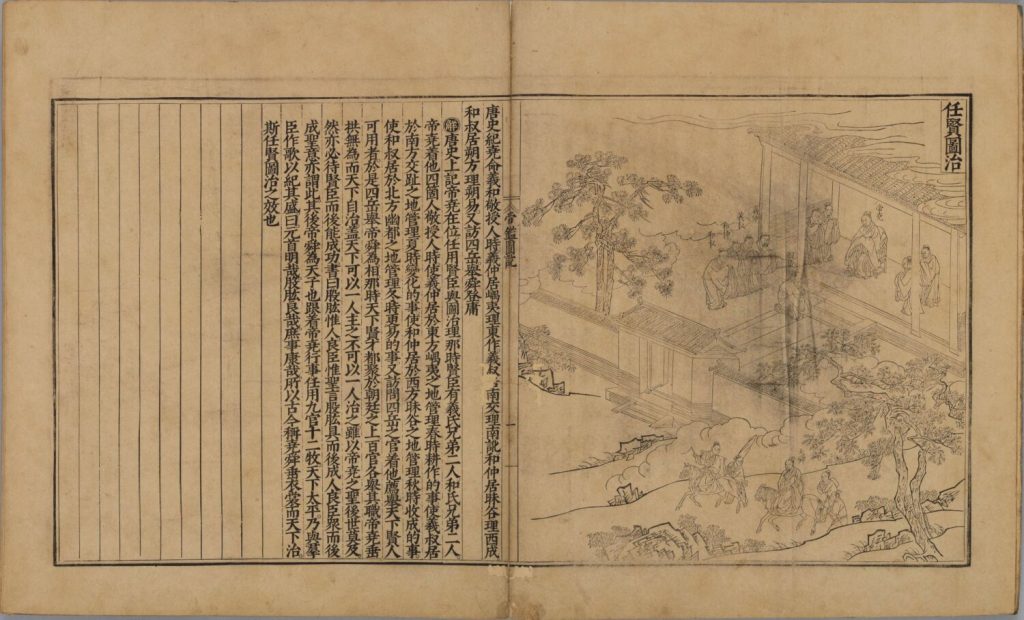 任賢圖治
帝鑑圖說
一
唐史紀堯命羲和敬授人時羲仲居嵎夷理東作羲叔南交理南訛和仲居昧谷理西成
和叔居朔方理朔易又訪四岳舉舜登庸
解唐史上記帝堯在位任用賢臣與圖治理那時賢臣有羲氏兄弟二人和氏兄弟二人
帝堯着他四箇人敬授人時使羲仲居於東方嵎夷之地管理春時耕作的事使羲叔居
於南方交趾之地管理夏時變化的事使和仲居於西方昧谷之地管理秋時收成的事
使和叔居於北方幽都之地管理冬時更易的事又訪問四岳之官着他薦舉天下賢人
可用者於是四岳舉帝舜為相那時天下賢才都聚於朝廷之上百官各舉其職帝堯垂
拱無為而天下自治蓋天下可以一人主之不可以一人治之雖以帝堯之聖後世莫及
然亦必待賢臣而後能成功書曰股肱惟人良臣惟聖言股肱具而後成人良臣眾而後
成聖意亦謂此其後帝舜為天子也跟着帝堯行事任用九官十二牧天下太平乃與羣
臣作歌以紀其盛曰元首明哉股肱良哉庶事康哉所以古今稱堯舜垂衣裳而天下治
斯任賢圖治之效也